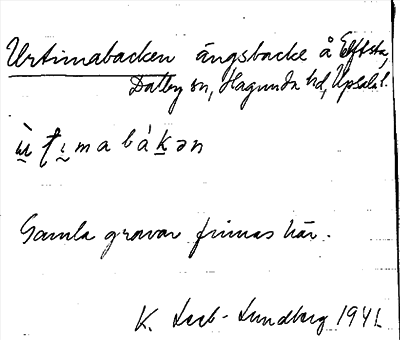 Urtimabacken ängsbacke å Elfsta,
Dalby sn, Hagunda hd, Upsala l.
Gamla gravar finnas här.
K. Leeb-Lundberg 1941